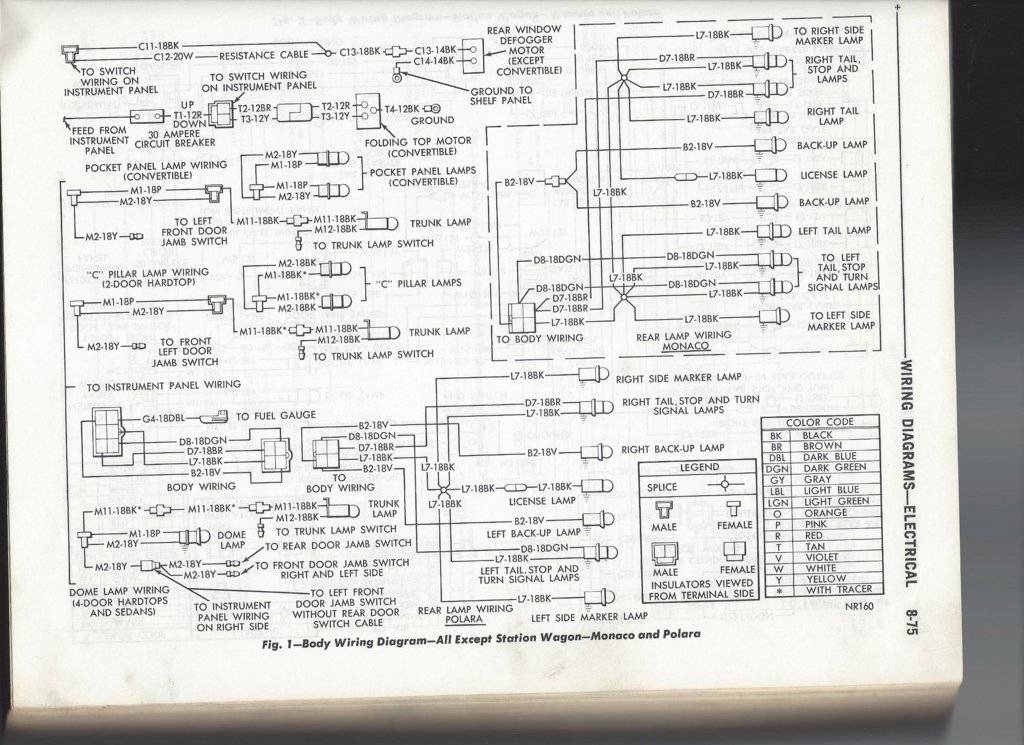 C11-18BK
C12-20W
RESISTANCE CABLE
C13-18BK
C13-14BK
C14-14BK
REAR WINDOW
DEFOGGER
MOTOR
(EXCEPT
CONVERTIBLE)
TO SWITCH
WIRING ON
INSTRUMENT PANEL
TO SWITCH WIRING
ON INSTRUMENT PANEL
GROUND TO
SHELF PANEL
UP
T1-12R
DOWN
T2-12BR
T3-12Y
T2-12R
T3-12Y
T4-12BK
GROUND
FEED FROM
INSTRUMENT
PANEL
30 AMPERE
CIRCUIT BREAKER
FOLDING TOP MOTOR
(CONVERTIBLE)
POCKET PANEL LAMP WIRING
(CONVERTIBLE)
M2-18Y
M1-18P
M1-18P
M2-18Y
POCKET PANEL LAMPS
(CONVERTIBLE)
M1-18P
M2-18Y
M2-18Y
TO LEFT
FRONT DOOR
JAMB SWITCH
M11-18BK
M11-18BK
M12-18BK
TRUNK LAMP
TO TRUNK LAMP SWITCH
"C" PILLAR LAMP WIRING
(2-DOOR HARDTOP)
M2-18BK
M1-18BK*
M1-18BK*
M2-18BK
"C" PILLAR LAMPS
M1-18P
M2-18Y
M2-18Y
TO FRONT
LEFT DOOR
JAMB SWITCH
M11-18BK*
M11-18BK
M12-18BK
TRUNK LAMP
TO TRUNK LAMP SWITCH
L7-18BK
TO RIGHT SIDE
MARKER LAMP
D7-18BR
L7-18BK
L7-18BK
D7-18BR
RIGHT TAIL,
STOP AND
LAMPS
L7-18BK
RIGHT TAIL
LAMP
B2-18V
BACK-UP LAMP
B2-18V
L7-18BK
L7-18BK
LICENSE LAMP
B2-18V
BACK-UP LAMP
L7-18BK
LEFT TAIL LAMP
D8-18DGN
D8-18DGN
L7-18BK
L7-18BK
D8-18DGN
D8-18DGN
L7-18BK
TO LEFT
TAIL, STOP
AND TURN
SIGNAL LAMPS
D7-18BR
D7-18BR
L7-18BK
L7-18BK
TO LEFT SIDE
MARKER LAMP
TO BODY WIRING
REAR LAMP WIRING
MONACO
TO INSTRUMENT PANEL WIRING
G4-18DBL
TO FUEL GAUGE
D8-18DGN
D7-18BR
L7-18BK
B2-18V
BODY WIRING
B2-18V
D8-18DGN
D7-18BR
L7-18BK
B2-18V
TO
BODY WIRING
L7-18BK
RIGHT SIDE MARKER LAMP
D7-18BR
L7-18BK
RIGHT TAIL, STOP AND TURN
SIGNAL LAMPS
B2-18V
RIGHT BACK-UP LAMP
L7-18BK
L7-18BK
L7-18BK
L7-18BK
LICENSE LAMP
B2-18V
LEFT BACK-UP LAMP
D8-18DGN
L7-18BK
LEFT TAIL, STOP AND
TURN SIGNAL LAMPS
L7-18BK
LEFT SIDE MARKER LAMP
REAR LAMP WIRING
POLARA
M11-18BK*
M11-18BK*
M11-18BK
M12-18BK
TRUNK
LAMP
TO TRUNK LAMP SWITCH
M1-18P
M2-18Y
DOME
LAMP
TO REAR DOOR JAMB SWITCH
M2-18Y
M2-18Y
M2-18Y
TO FRONT DOOR JAMB SWITCH
RIGHT AND LEFT SIDE
DOME LAMP WIRING
(4-DOOR HARDTOPS
AND SEDANS)
TO INSTRUMENT
PANEL WIRING
ON RIGHT SIDE
TO LEFT FRONT
DOOR JAMB SWITCH
WITHOUT REAR DOOR
SWITCH CABLE
LEGEND
SPLICE
MALE
FEMALE
MALE
FEMALE
INSULATORS VIEWED
FROM TERMINAL SIDE
COLOR CODE
BK BLACK
BR BROWN
DBL DARK BLUE
DGN DARK GREEN
GY GRAY
LBL LIGHT BLUE
LGN LIGHT GREEN
O ORANGE
P PINK
R RED
T TAN
V VIOLET
W WHITE
Y YELLOW
* WITH TRACER
NR160
Fig. 1—Body Wiring Diagram—All Except Station Wagon—Monaco and Polara
WIRING DIAGRAMS—ELECTRICAL 8-75